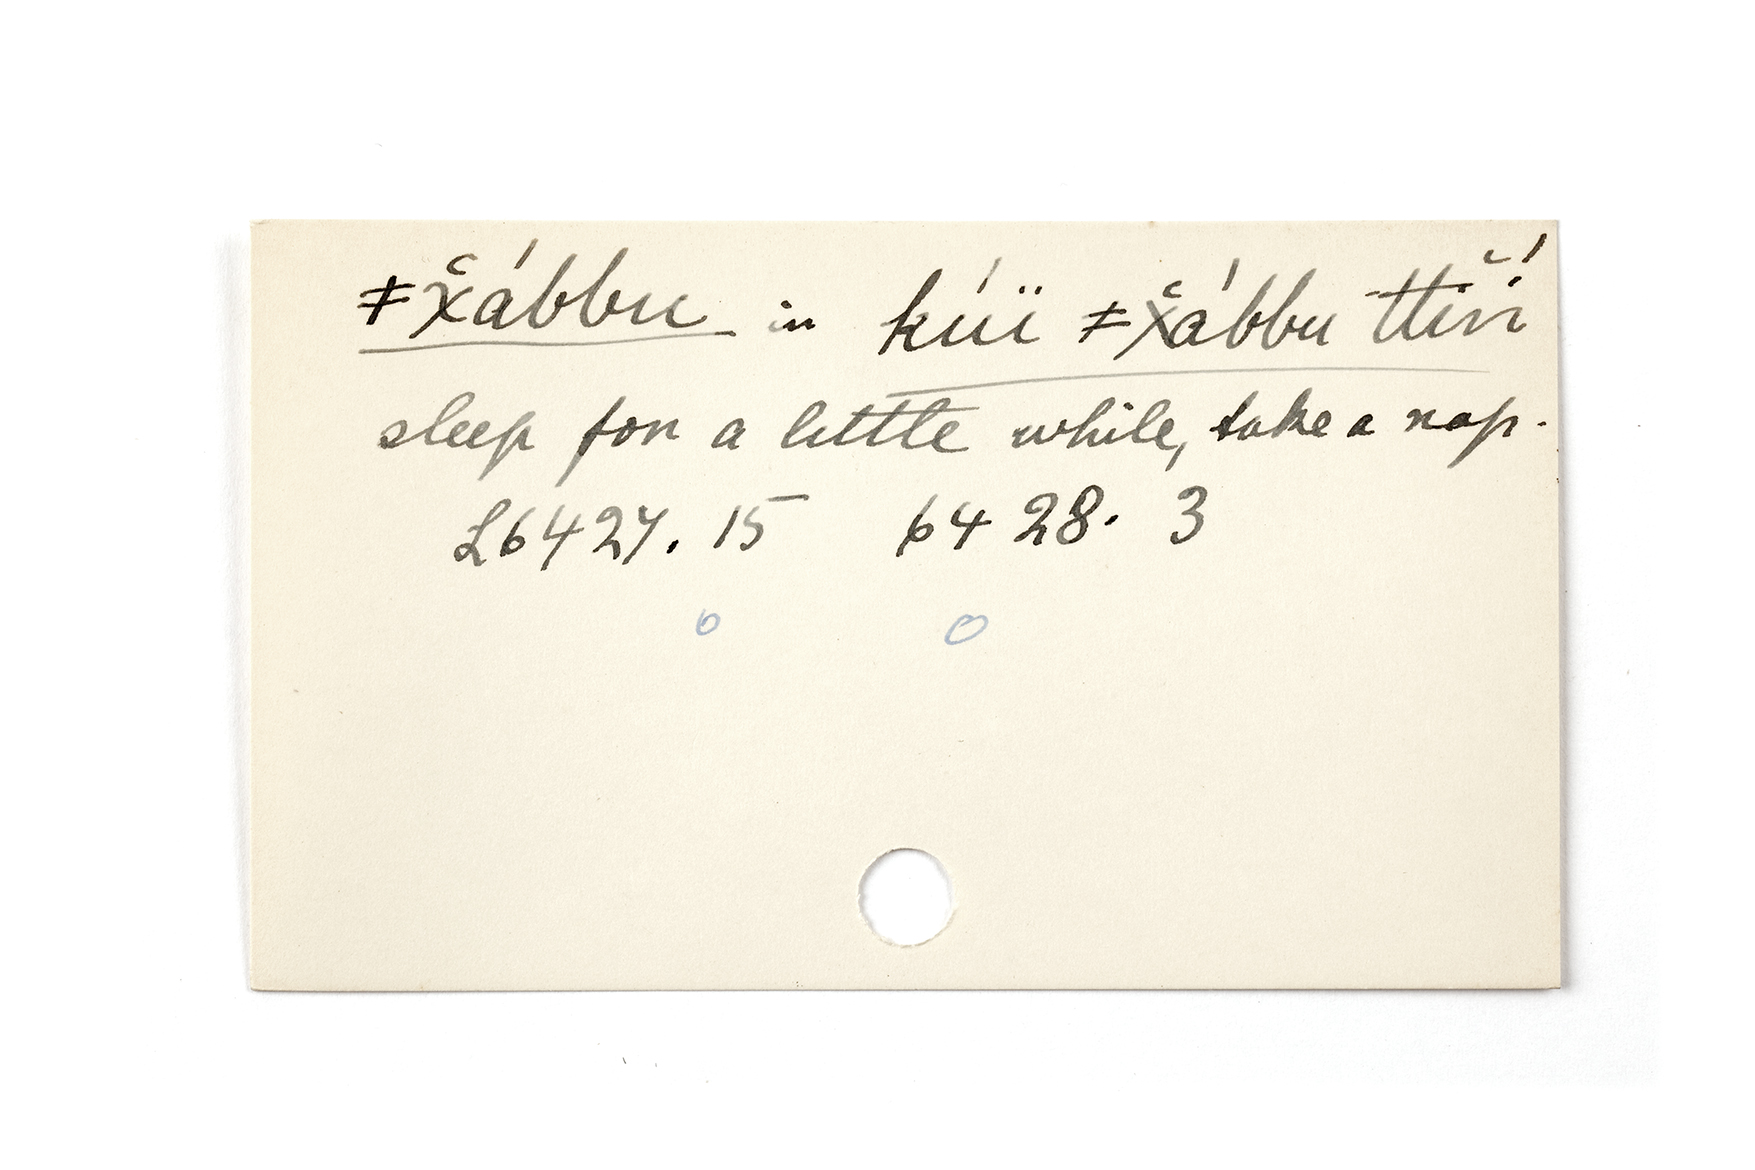 ǂx̆ábbu in kúï ǂx̆ábbu ttĭńĭ
sleep for a little while, take a nap.
L6427. 15 6428. 3